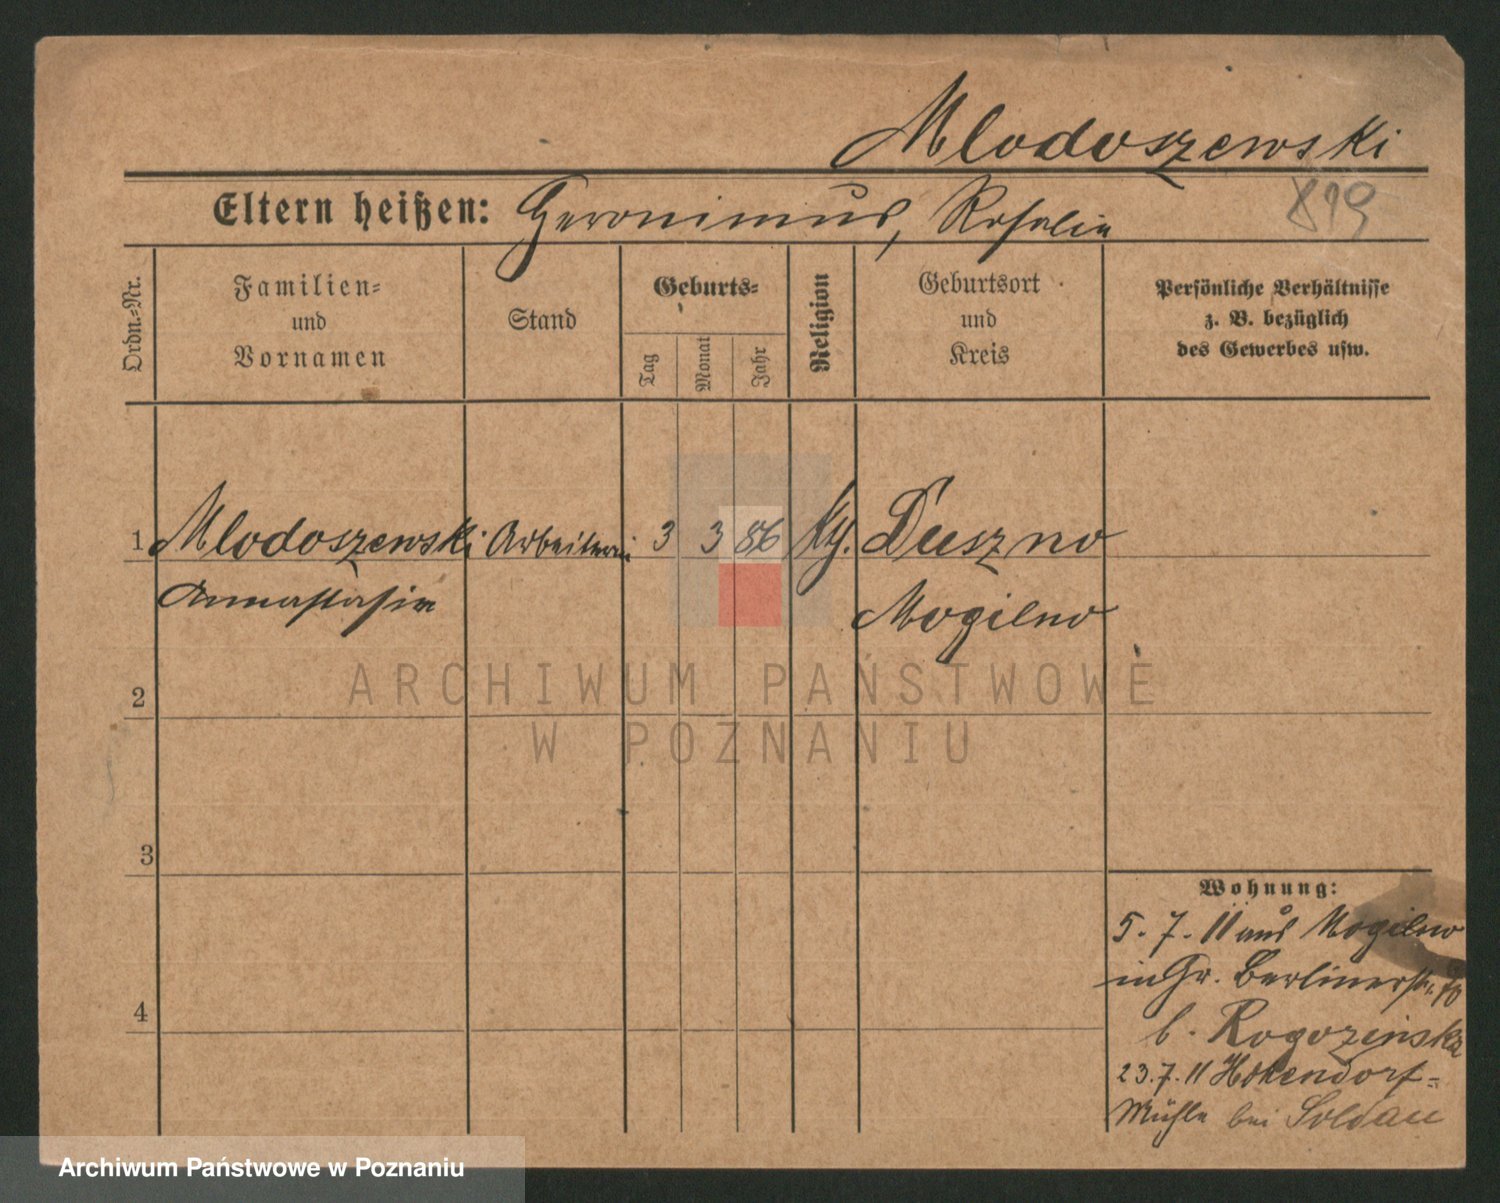 Mlodoszewski
Eltern heißen: Geronimus, Rosalie
899
Ordn.-Nr.
Familien-
und
Vornamen
Stand
Geburts-
Tag
Monat
Jahr
Religion
Geburtsort
und
Kreis
Persönliche Verhältnisse
z. B. bezüglich
des Gewerbes usw.
1 Mlodoszewski Arbeiterin 3 3 86 Duszno
Annastasie Mogilno
2
3
4
Wohnung:
5.7.11 aus Mogilno
in Gr. Berlinerstr.
b. Rogozinska
23.7.11 Hohendorf-
Mühle bei Soldau
ARCHIWUM PAŃSTWOWE
W POZNANIU
Archiwum Państwowe w Poznaniu